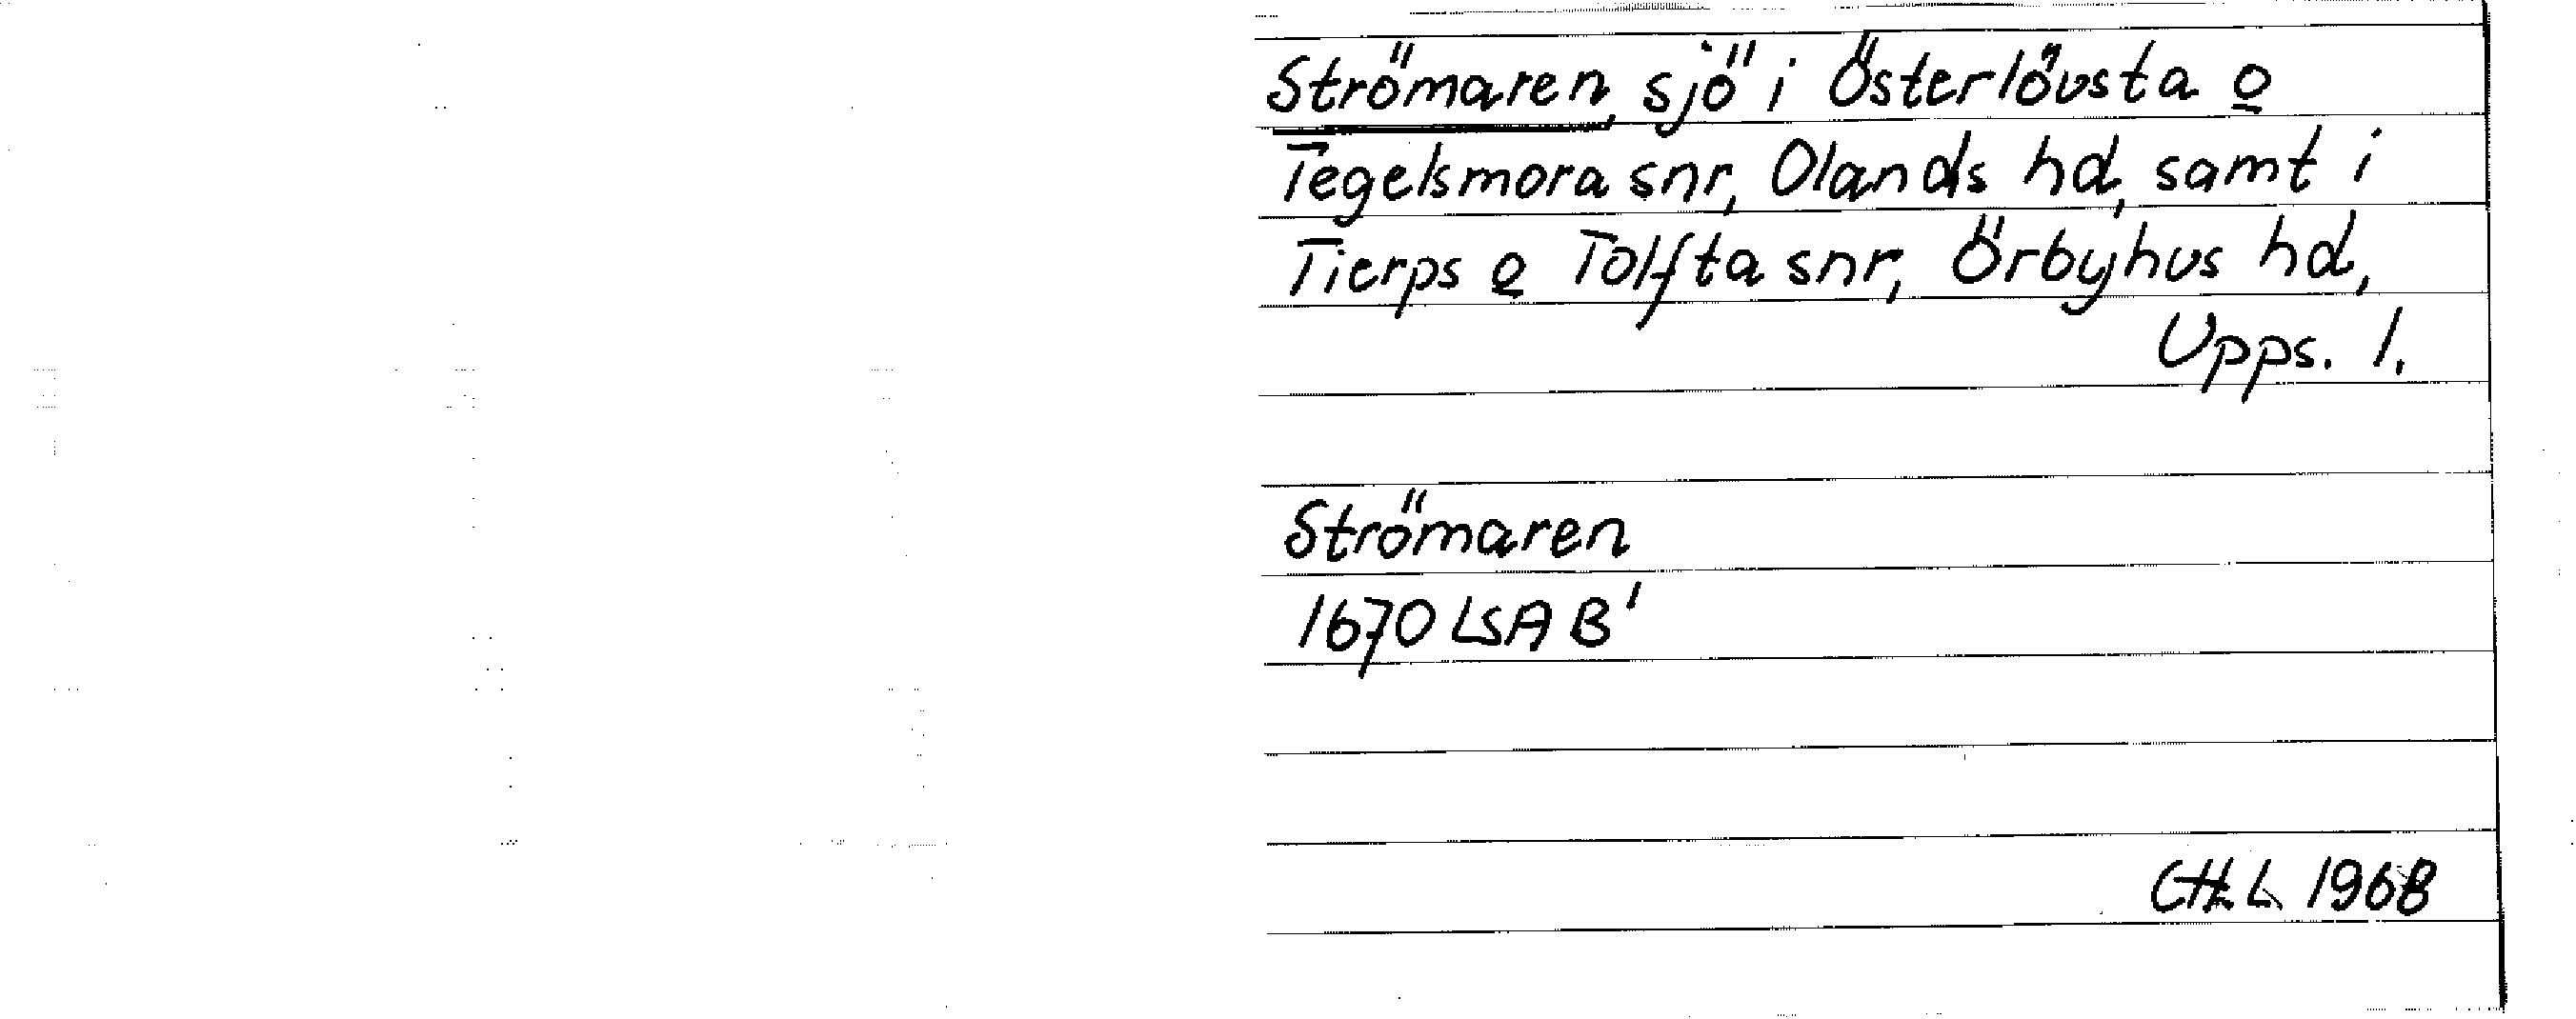 Strömaren, sjö i Österlövsta o
Tegelsmora snr, Olands hd, samt i
Tierps o Tolfta snr, Örbyhus hd,
Upps. l.
Strömaren
1670 LSA B'
CHL 1968